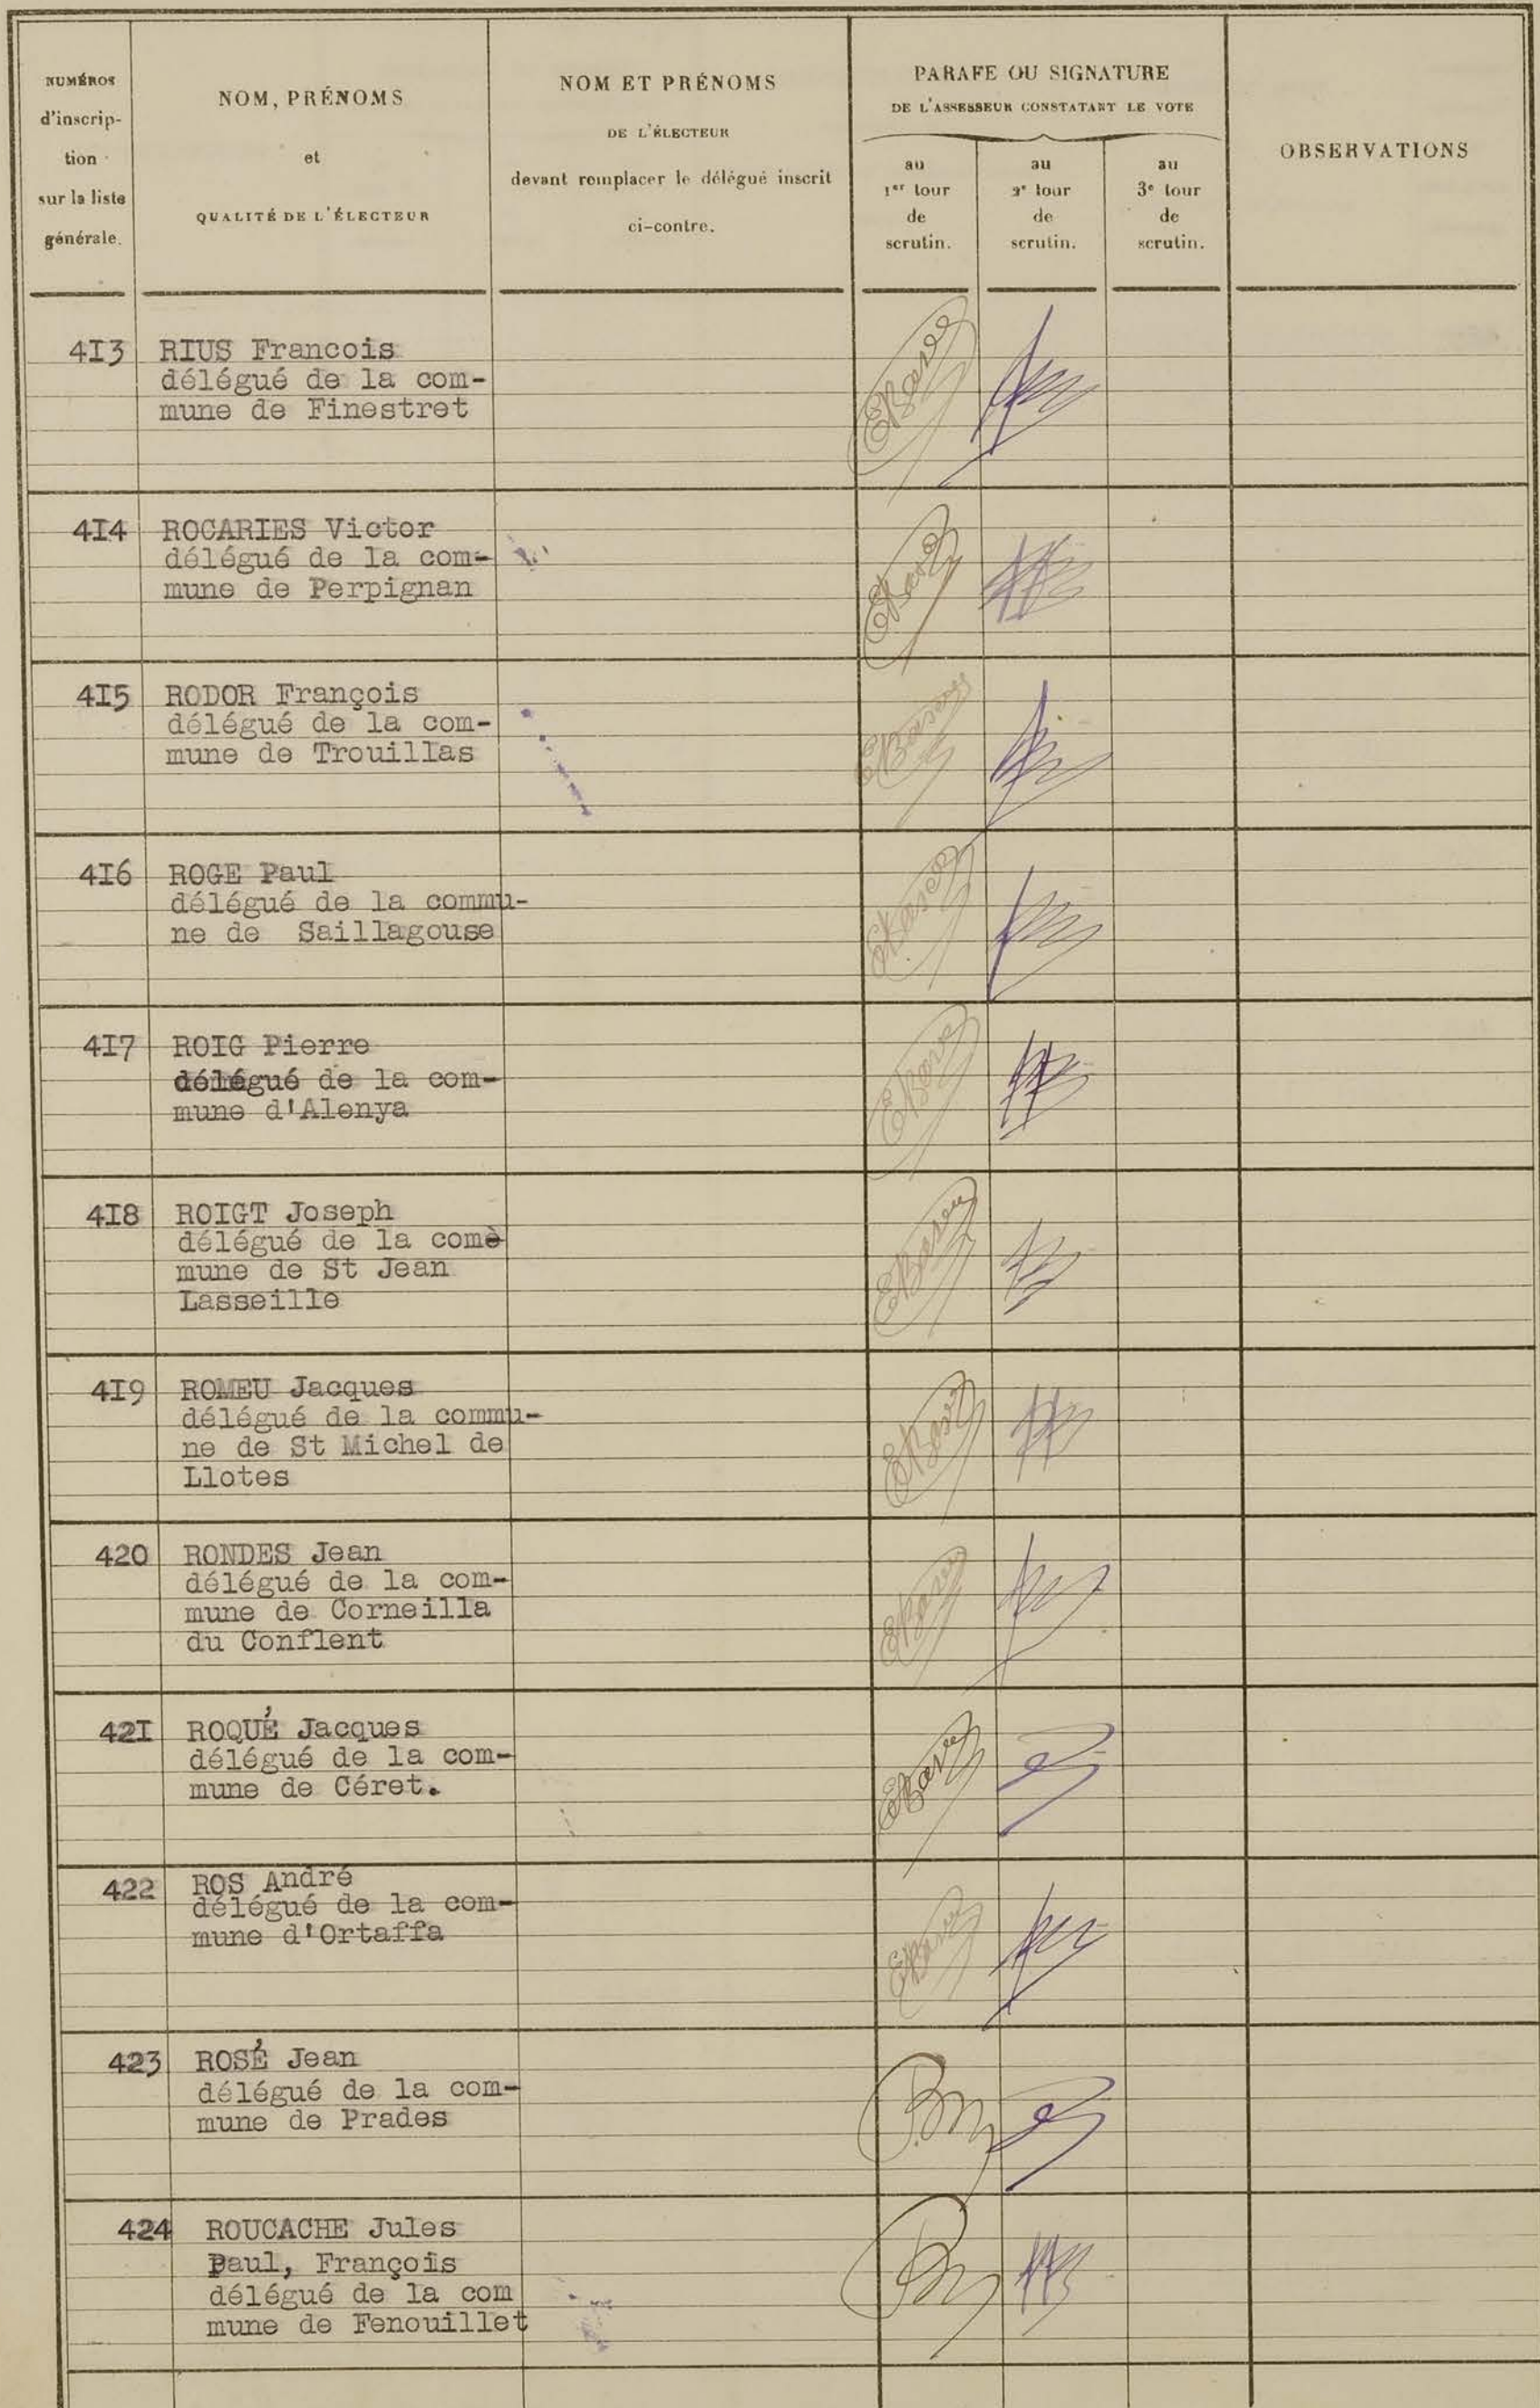 NUMÉROS
d'inscrip-
tion
sur la liste
générale.
NOM, PRÉNOMS
et
QUALITÉ DE L'ÉLECTEUR
NOM ET PRÉNOMS
DE L'ÉLECTEUR
devant remplacer le délégué inscrit
ci-contre.
PARAFE OU SIGNATURE
DE L'ASSESSEUR CONSTATANT LE VOTE
au
1er tour
de
scrutin.
au
2e tour
de
scrutin.
au
3e tour
de
scrutin.
OBSERVATIONS
4I3 RIUS Francois
délégué de la com-
mune de Finestret
4I4 ROCARIES Victor
délégué de la com-
mune de Perpignan
4I5 RODOR François
délégué de la com-
mune de Trouillas
4I6 ROGE Paul
délégué de la commu-
ne de Saillagouse
4I7 ROIG Pierre
délégué de la com-
mune d'Alenya
4I8 ROIGT Joseph
délégué de la comè
mune de St Jean
Lasseille
4I9 ROMEU Jacques
délégué de la commu-
ne de St Michel de
Llotes
420 RONDES Jean
délégué de la com-
mune de Corneilla
du Conflent
42I ROQUÉ Jacques
délégué de la com-
mune de Céret.
422 ROS André
délégué de la com-
mune d'Ortaffa
423 ROSÉ Jean
délégué de la com-
mune de Prades
424 ROUCACHE Jules
Paul, François
délégué de la com
mune de Fenouillet